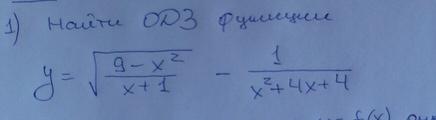 1) Найти ОДЗ функции
y = √((9 − x²)/(x + 1)) − 1/(x² + 4x + 4)